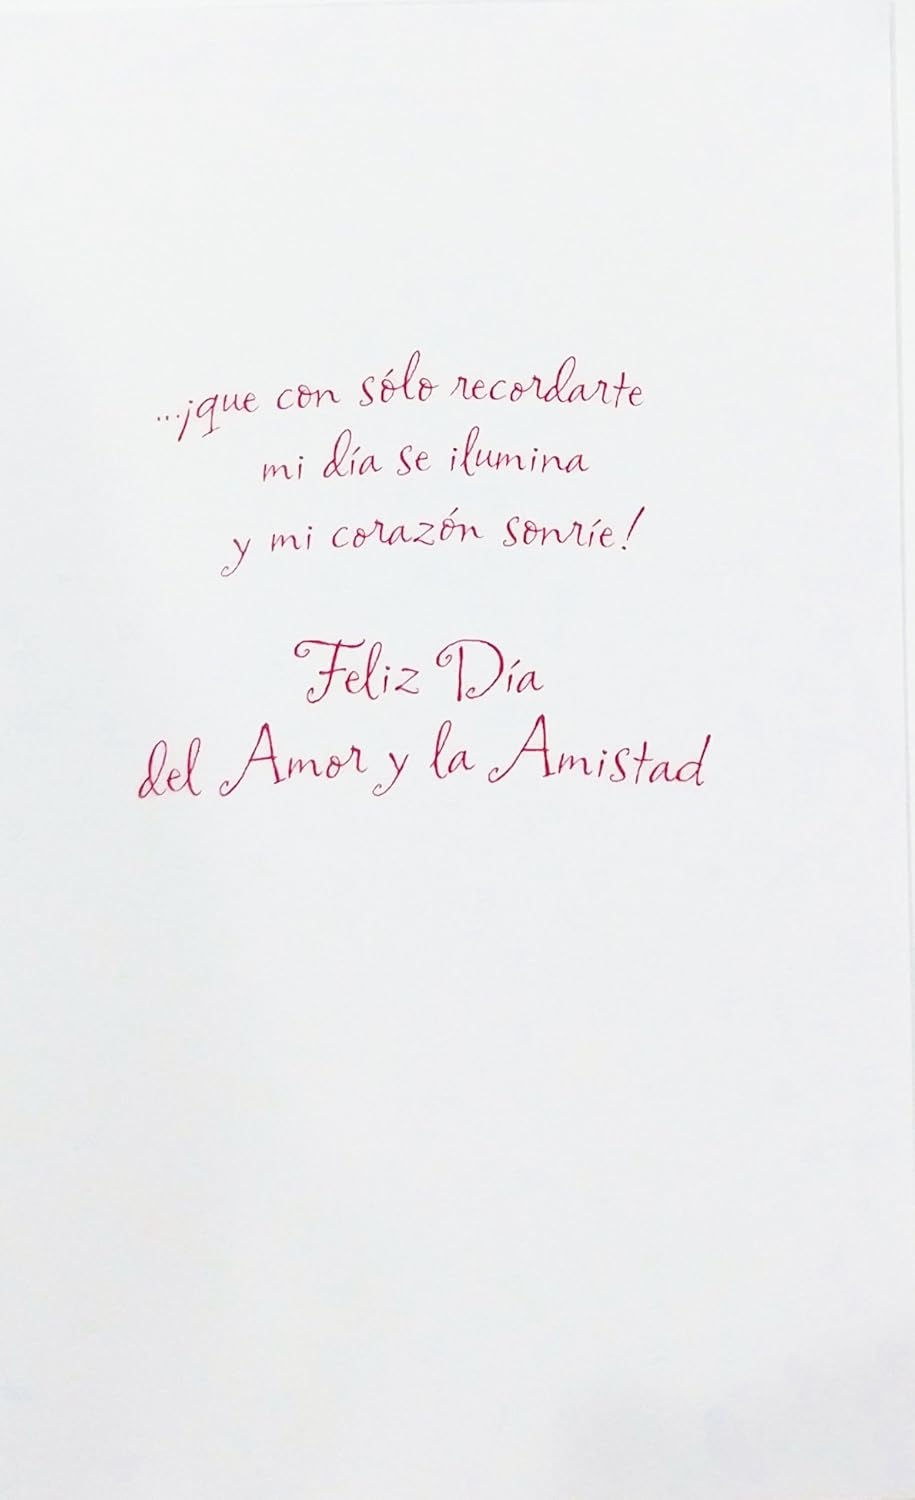 ...¡que con sólo recordarte
mi día se ilumina
y mi corazón sonríe!
Feliz Día
del Amor y la Amistad